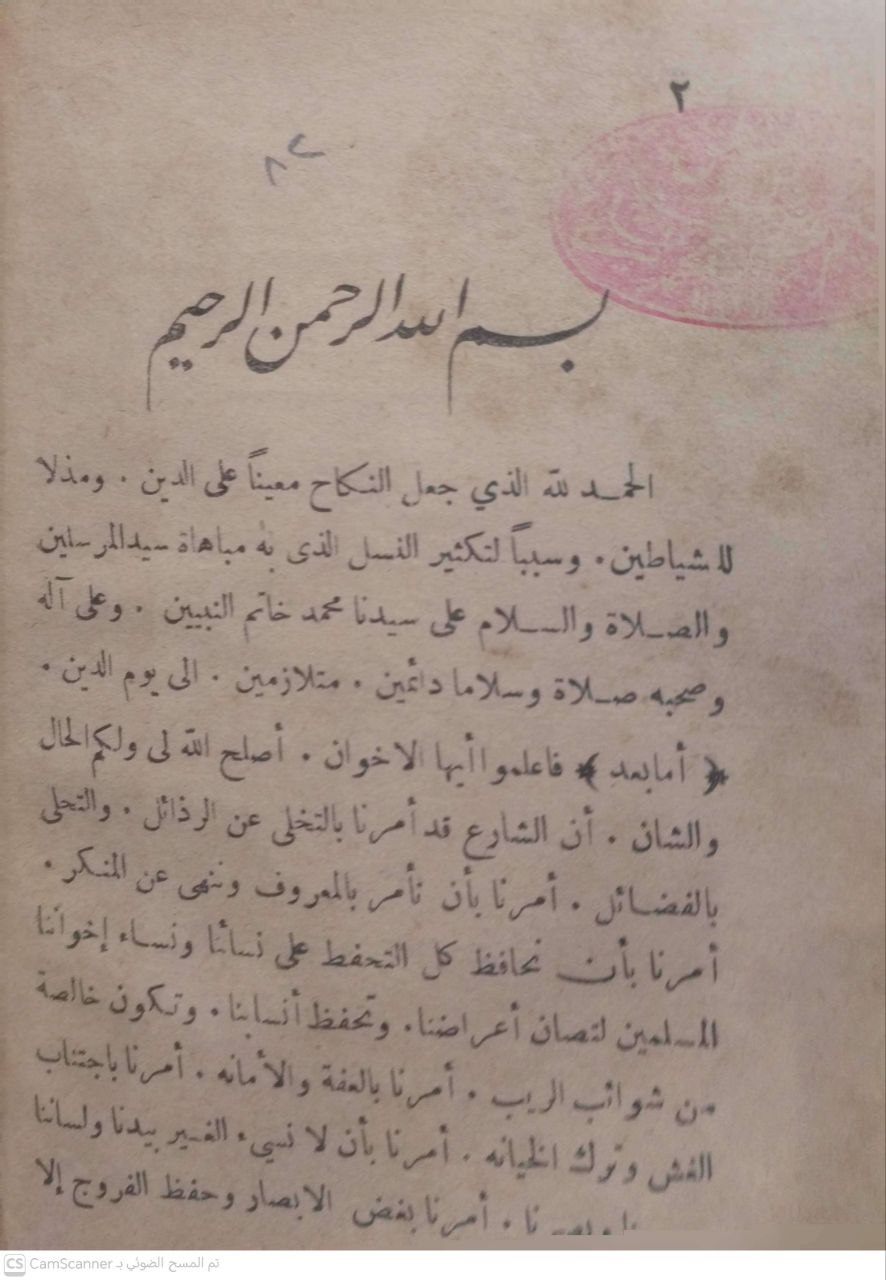 ٢
٨٢
بسم الله الرحمن الرحيم
الحمد لله الذي جعل النكاح معيناً على الدين . ومذلا
للشياطين . وسبباً لتكثير النسل الذى به مباهاة سيد المرسلين
والصلاة والسلام على سيدنا محمد خاتم النبيين . وعلى آله
وصحبه صلاة وسلاما دائمين . متلازمين . الى يوم الدين .
﴿ أما بعد ﴾ فاعلموا أيها الاخوان . أصلح الله لى ولكم الحال
والشان . أن الشارع قد أمرنا بالتخلى عن الرذائل . والتحلى
بالفضائل . أمرنا بأن نأمر بالمعروف وننهى عن المنكر .
أمرنا بأن نحافظ كل التحفط على نسائنا ونساء إخواننا
المسلمين لتصان أعراضنا . وتحفظ أنسابنا . وتكون خالصة
من شوائب الريب . أمرنا بالعفة والأمانه . أمرنا باجتناب
الغش وترك الخيانه . أمرنا بأن لا نسيء الغير بيدنا ولساننا
أمرنا بغض الابصار وحفظ الفروج إلا
CS CamScanner تم المسح الضوئي بـ